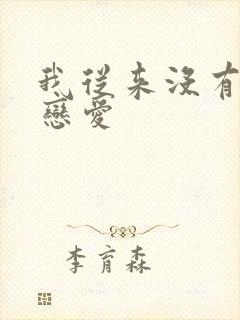 我從來沒有
戀愛
李育森